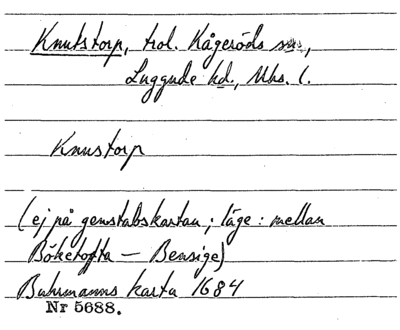 Knutstorp, trol. Kågeröds sn,
Luggude hd., Mhs. l.
Knustorp
(ej på genstabskartan; läge: mellan
Böketofta — Bensige)
Buhrmanns karta 1684
Nr 5688.